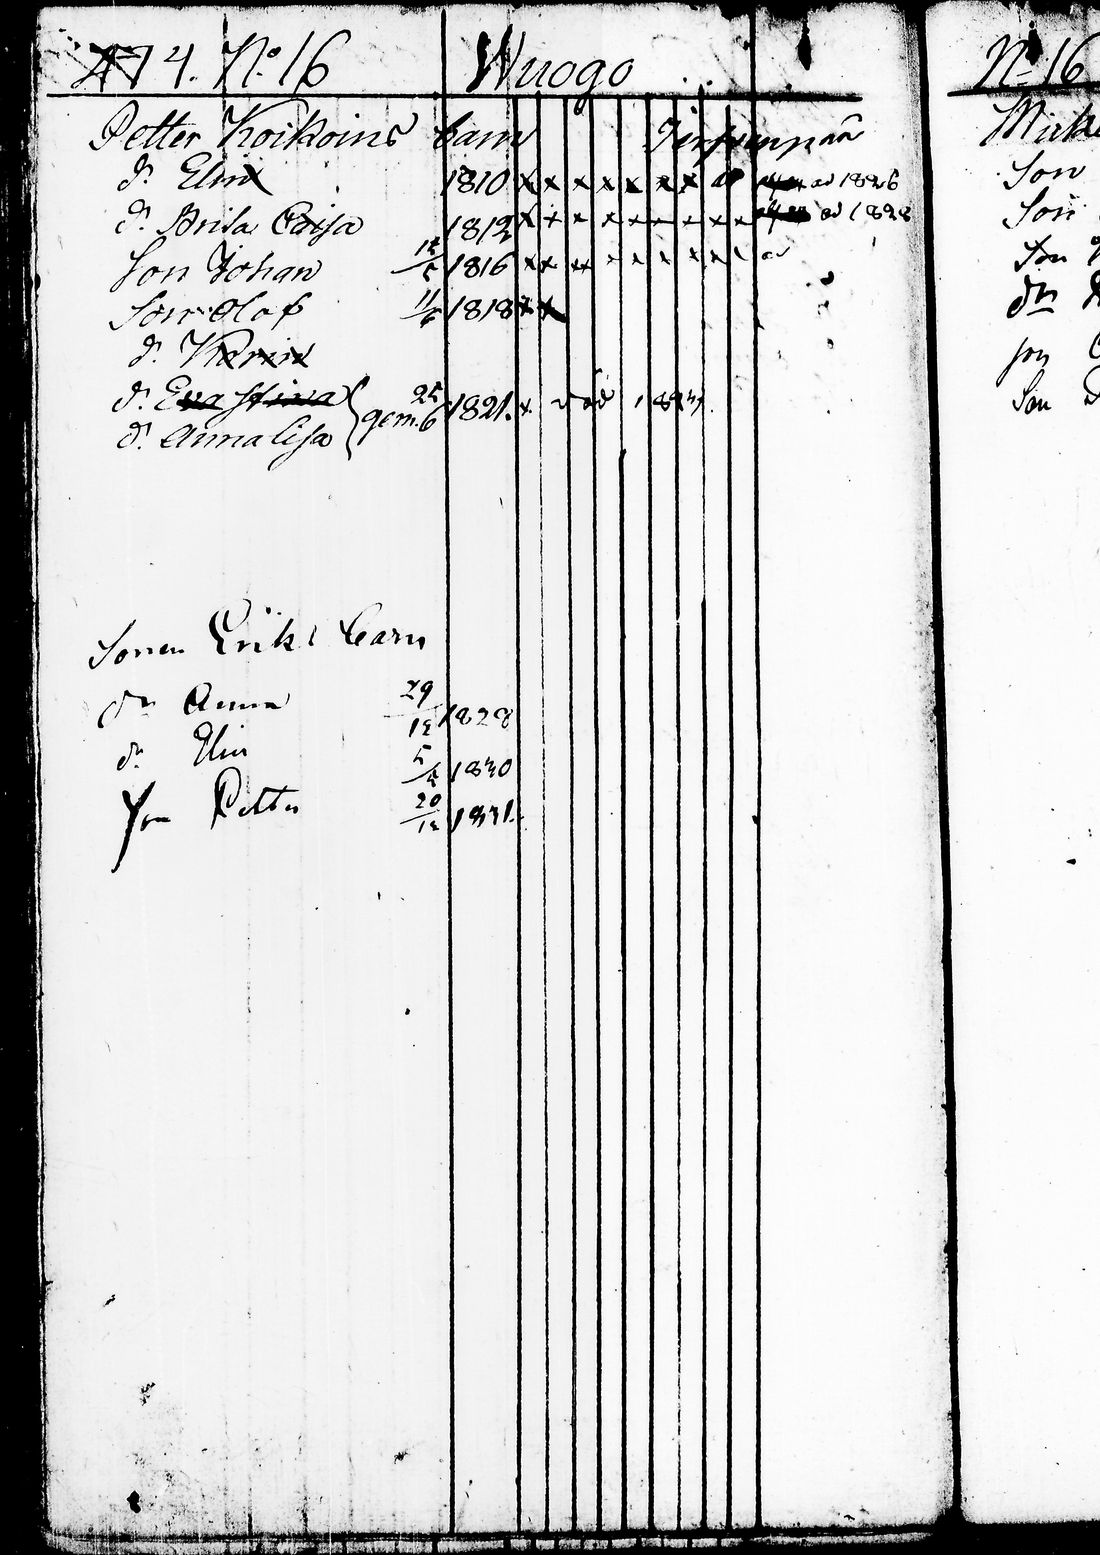 474. No. 16 Wuogo
Petter Koikoins barn
d. Elin 1810 x x x x x x x ad 1826
d. Brita Caisa 1812 x x x x x x x x x ad 1828
Son Johan 1816 x x x x x x x x
Son Olof 11/6 1818 x x
d. Karin
d. Eva Stina
gem. 25/6 1821. x död
d. Anna Lisa
Sonen Eriks barn
dr Anna 29/12 1828
dr Elin 1830
Son Petter 20/12 1831.
No 16
Son
Son
Son
dr
son
Son